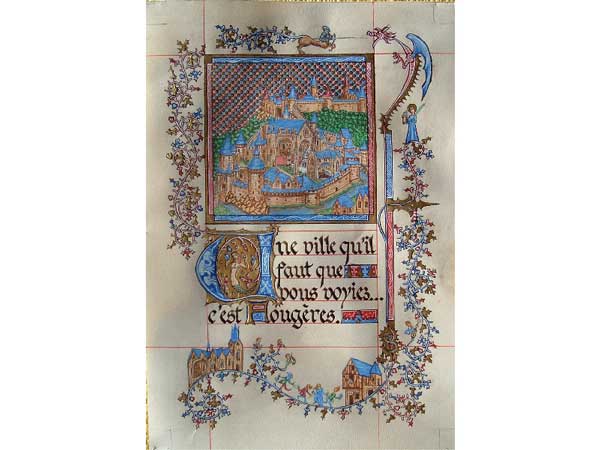 Une ville qu'il
faut que
vous voyiez...
c'est Fougères.